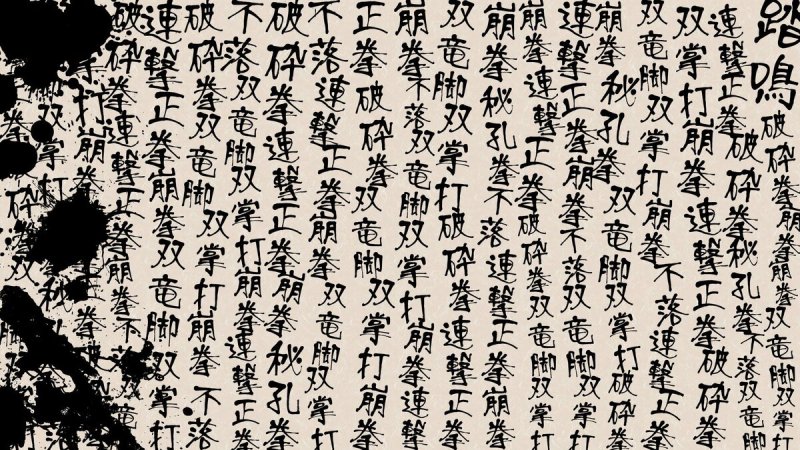 踏鳴
破砕拳崩拳崩拳双竜
連撃正拳破砕拳秘孔拳不落双竜脚
双掌打崩拳連撃正拳破砕拳
双竜脚双掌打崩拳不落連撃正拳
崩拳秘孔拳双竜脚双掌打破砕拳
連撃正拳崩拳不落双竜脚崩拳
崩拳連撃正拳破砕拳双竜脚双掌打
崩拳秘孔拳不落連撃正拳崩拳
双竜脚双掌打破砕拳連撃正拳
崩拳不落双竜脚双掌打崩拳連撃
正拳破砕拳双竜脚双掌打崩拳
不落連撃正拳崩拳双竜脚双掌打
破砕拳連撃正拳崩拳秘孔拳
不落双竜脚双掌打崩拳連撃正拳
破砕拳双竜脚双掌打崩拳不落
連撃正拳崩拳双竜脚双掌打
破砕拳連撃正拳崩拳崩拳不落
拳打崩拳
双掌打